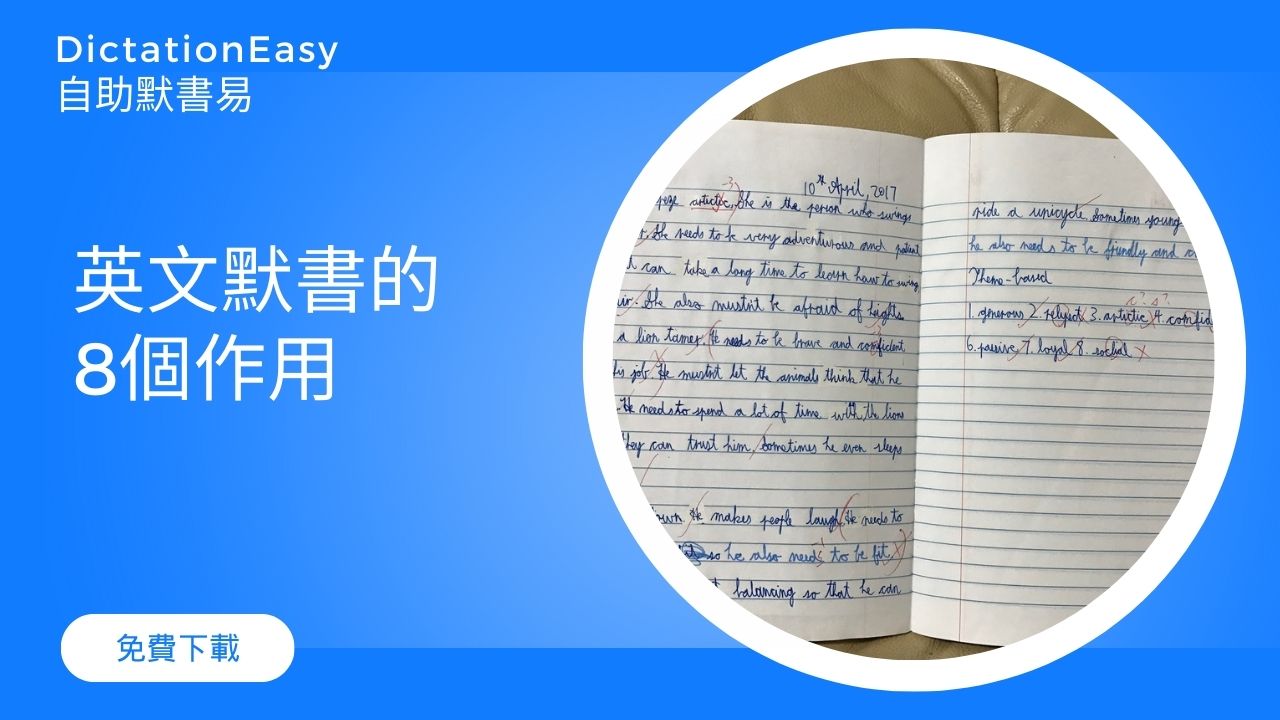 DictationEasy
自助默書易
英文默書的
8個作用
免費下載
10th April, 2017
artictic, She is the person who swings
. She needs to be very adventurous and patient
can take a long time to learn how to swing
air. She also mustn't be afraid of hights.
a lion tamer. He needs to be brave and confident
his job. He mustnt let the animals think that he
. He needs to spend a lot of time with the lions
they can trust him. Sometimes he even sleeps
He makes people laugh. He needs to
so he also needs to be fit.
balancing so that he can
ride a unicycle. Sometimes young
he also needs to be friendly and
Theme-based
1. generous 2. 3. artictic 4. confid
6. passive 7. loyal 8. social